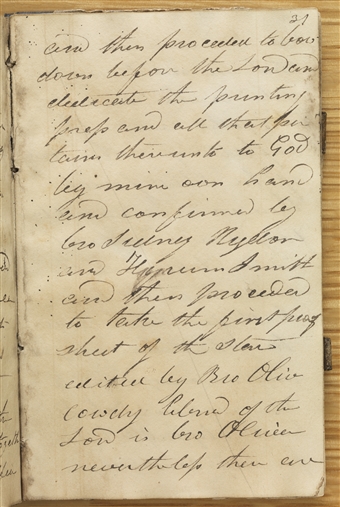 21
and then proceded to bow
down before the Lord and
dedicate the printing
press and all that per
tains thereunto to God
by mine own hand
and confirmed by
bro Sidney Rigdon
and Hyrum Smith
and then proceded
to take the first proof
sheet of the Star
edited by Bro Oliv
Cowdy blessd of the
Lord is bro Oliver
nevertheless there are